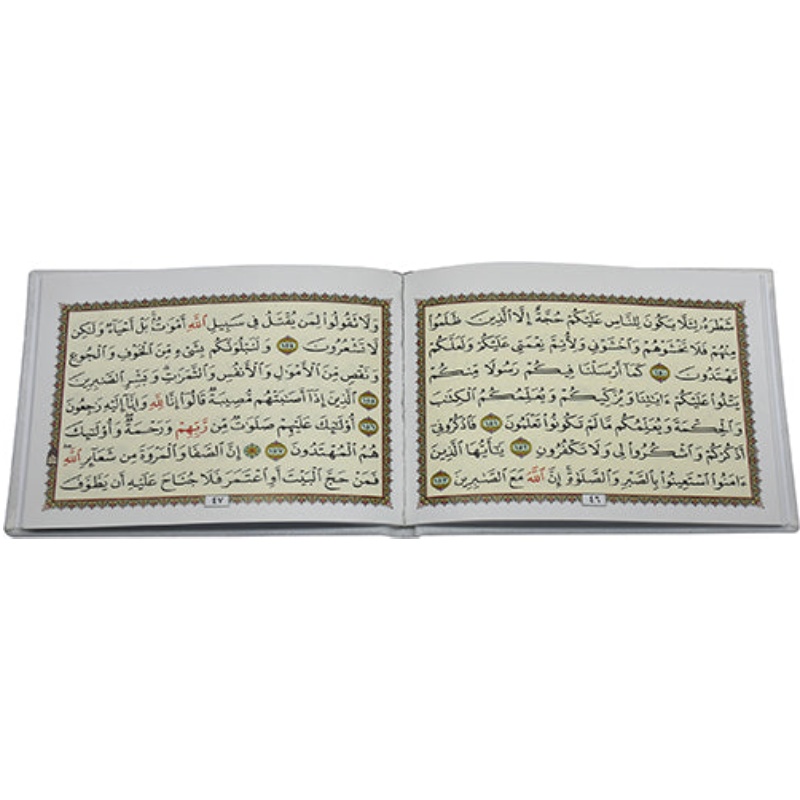 شَطْرَهُۥ لِئَلَّا يَكُونَ لِلنَّاسِ عَلَيْكُمْ حُجَّةٌ إِلَّا ٱلَّذِينَ ظَلَمُوا۟
مِنْهُمْ فَلَا تَخْشَوْهُمْ وَٱخْشَوْنِى وَلِأُتِمَّ نِعْمَتِى عَلَيْكُمْ وَلَعَلَّكُمْ
تَهْتَدُونَ ١٥٠ كَمَآ أَرْسَلْنَا فِيكُمْ رَسُولًا مِّنكُمْ
يَتْلُوا۟ عَلَيْكُمْ ءَايَٰتِنَا وَيُزَكِّيكُمْ وَيُعَلِّمُكُمُ ٱلْكِتَٰبَ
وَٱلْحِكْمَةَ وَيُعَلِّمُكُم مَّا لَمْ تَكُونُوا۟ تَعْلَمُونَ ١٥١ فَٱذْكُرُونِىٓ
أَذْكُرْكُمْ وَٱشْكُرُوا۟ لِى وَلَا تَكْفُرُونِ ١٥٢ يَٰٓأَيُّهَا ٱلَّذِينَ
ءَامَنُوا۟ ٱسْتَعِينُوا۟ بِٱلصَّبْرِ وَٱلصَّلَوٰةِ إِنَّ ٱللَّهَ مَعَ ٱلصَّٰبِرِينَ ١٥٣
٤٦
وَلَا تَقُولُوا۟ لِمَن يُقْتَلُ فِى سَبِيلِ ٱللَّهِ أَمْوَٰتٌۢ بَلْ أَحْيَآءٌ وَلَٰكِن
لَّا تَشْعُرُونَ ١٥٤ وَلَنَبْلُوَنَّكُم بِشَىْءٍ مِّنَ ٱلْخَوْفِ وَٱلْجُوعِ
وَنَقْصٍ مِّنَ ٱلْأَمْوَٰلِ وَٱلْأَنفُسِ وَٱلثَّمَرَٰتِ وَبَشِّرِ ٱلصَّٰبِرِينَ
١٥٥ ٱلَّذِينَ إِذَآ أَصَٰبَتْهُم مُّصِيبَةٌ قَالُوٓا۟ إِنَّا لِلَّهِ وَإِنَّآ إِلَيْهِ رَٰجِعُونَ
١٥٦ أُو۟لَٰٓئِكَ عَلَيْهِمْ صَلَوَٰتٌ مِّن رَّبِّهِمْ وَرَحْمَةٌ وَأُو۟لَٰٓئِكَ
هُمُ ٱلْمُهْتَدُونَ ١٥٧ ۞ إِنَّ ٱلصَّفَا وَٱلْمَرْوَةَ مِن شَعَآئِرِ ٱللَّهِ
فَمَنْ حَجَّ ٱلْبَيْتَ أَوِ ٱعْتَمَرَ فَلَا جُنَاحَ عَلَيْهِ أَن يَطَّوَّفَ
٤٧